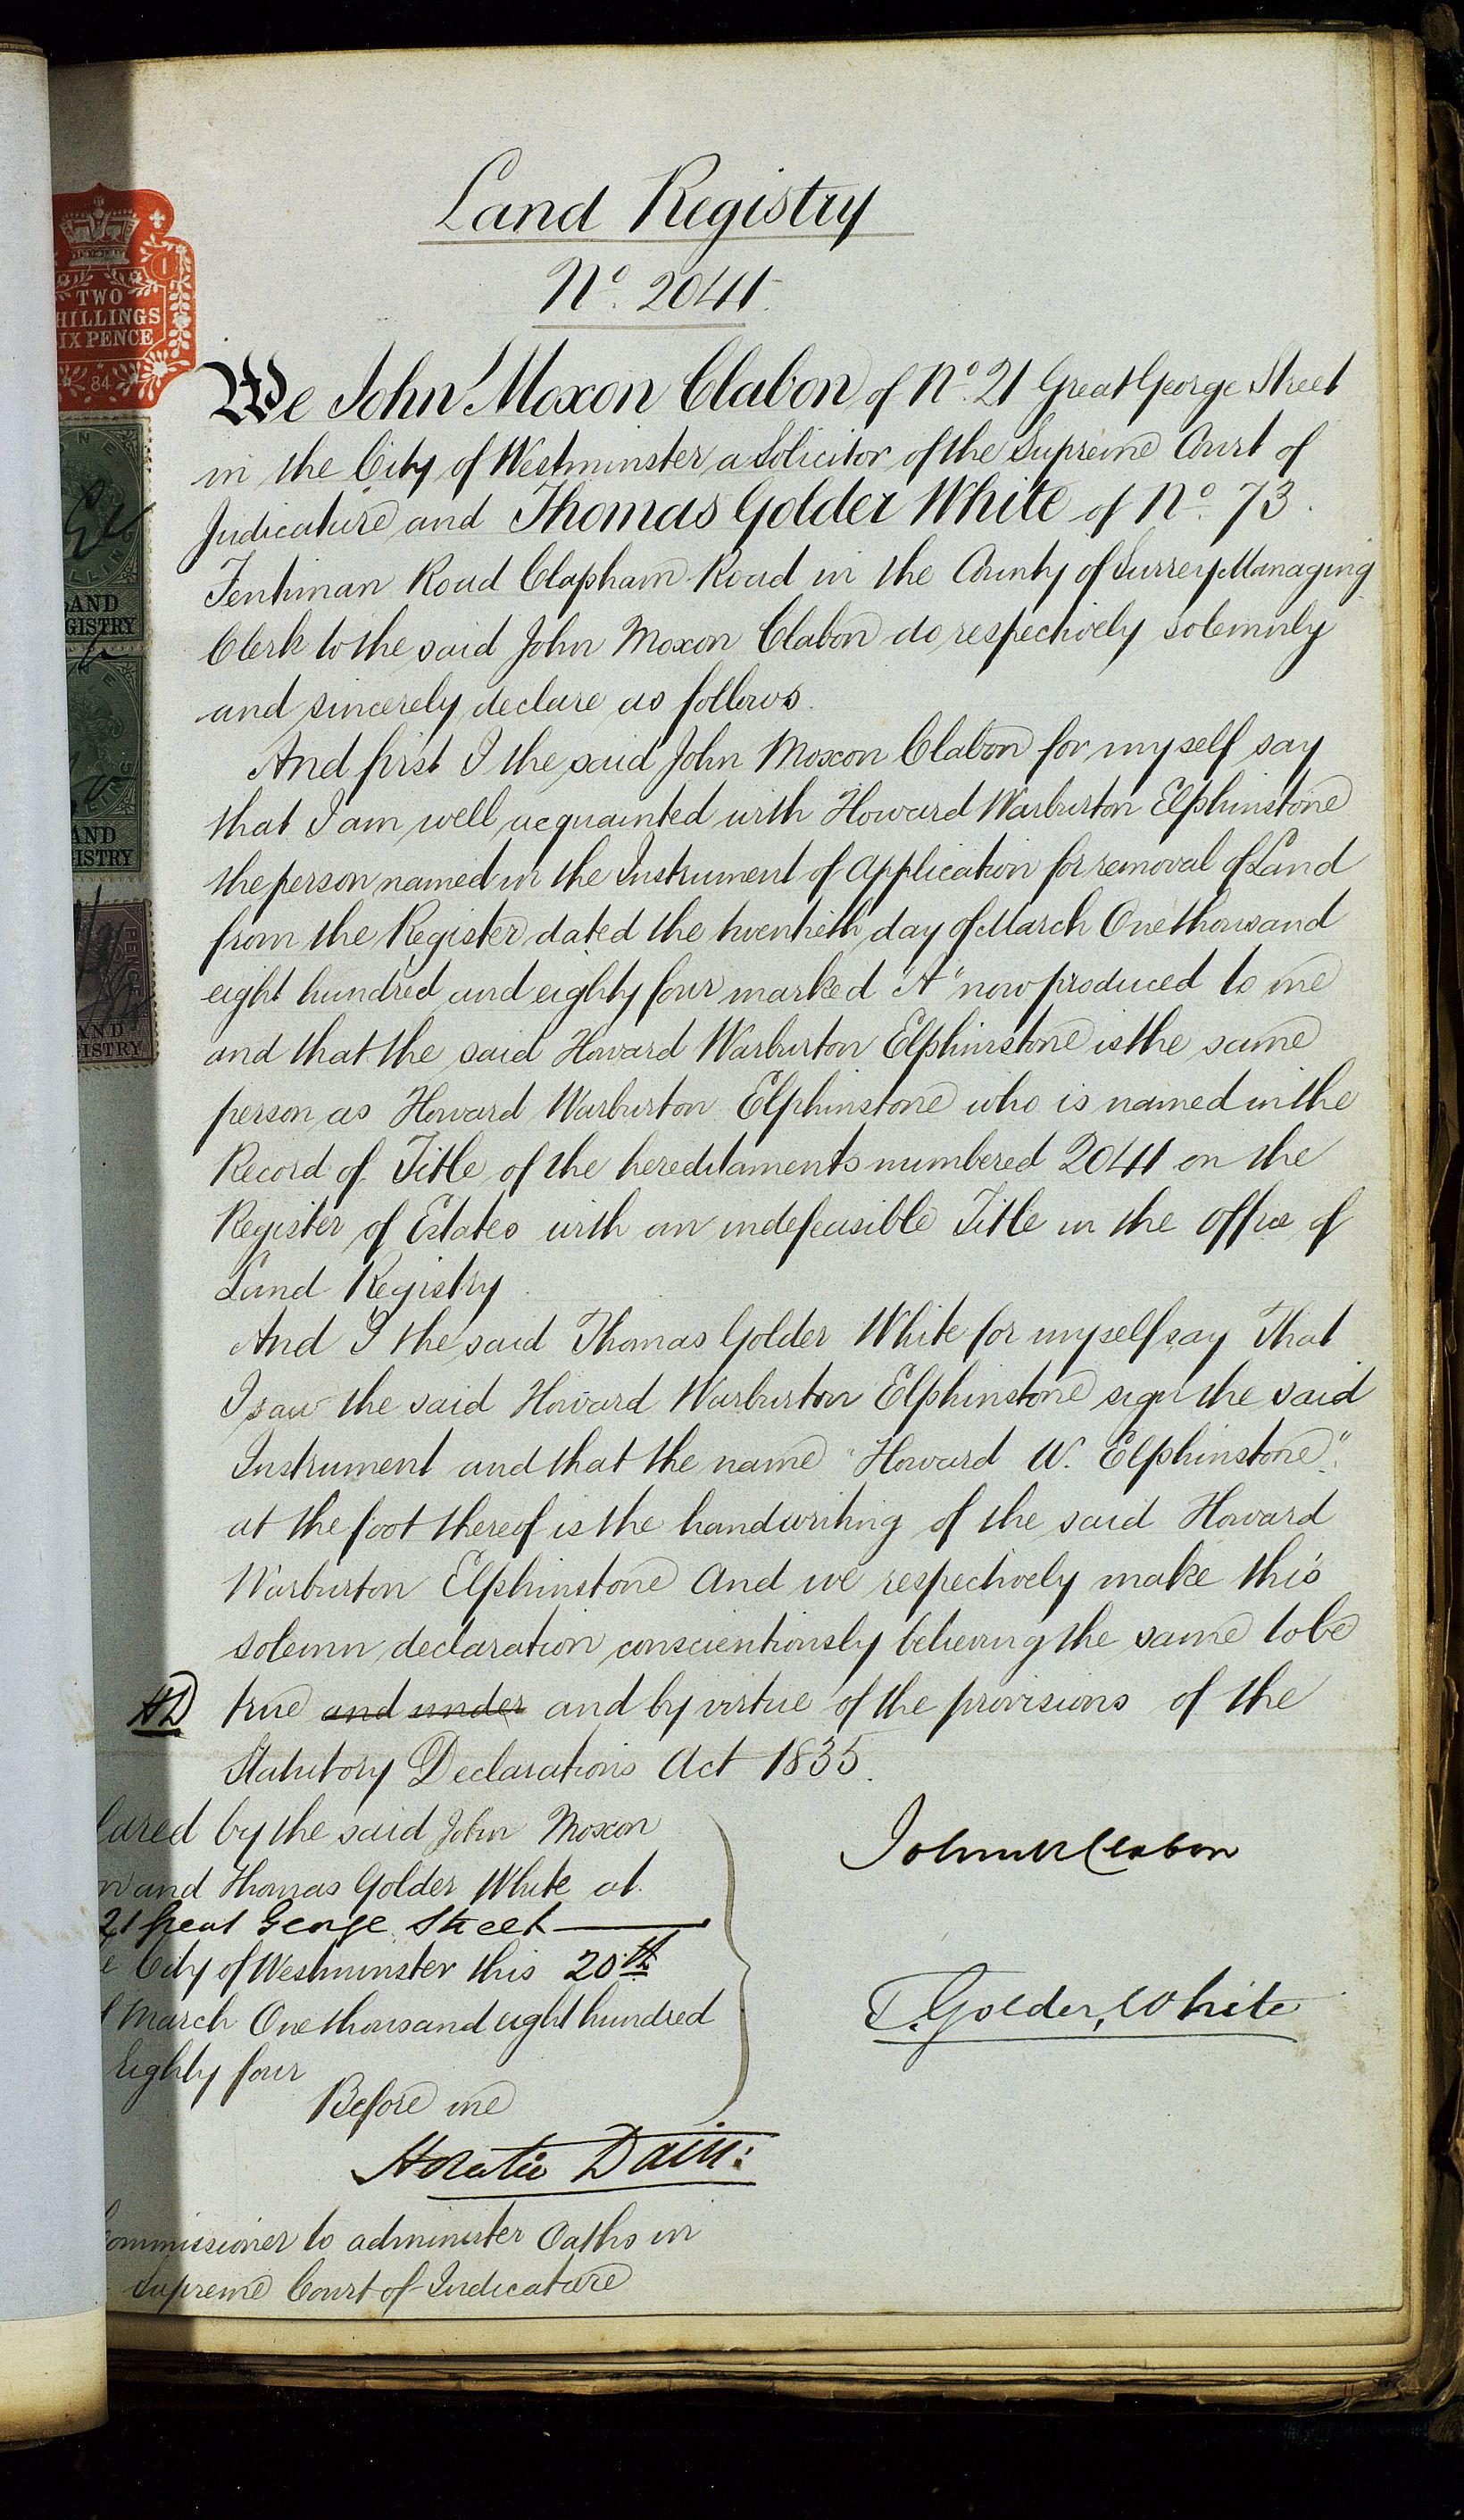 Land Registry
No. 2041
TWO
HILLINGS
IX PENCE
84
We John Moxon Clabon of No. 21 Great George Street
in the City of Westminster a Solicitor of the Supreme Court of
Judicature and Thomas Golder White of No. 73
Fentiman Road Clapham Road in the County of Surrey Managing
Clerk to the said John Moxon Clabon do respectively solemnly
and sincerely declare as follows.
And first I the said John Moxon Clabon for myself say
that I am well acquainted with Howard Warburton Elphinstone
the person named in the Instrument of Application for removal of Land
from the Register dated the twentieth day of March One thousand
eight hundred and eighty four marked "A" now produced to me
and that the said Howard Warburton Elphinstone is the same
person as Howard Warburton Elphinstone who is named in the
Record of Title of the hereditaments numbered 2041 on the
Register of Estates with an indefeasible Title in the office of
Land Registry
And I the said Thomas Golder White for myself say That
I saw the said Howard Warburton Elphinstone sign the said
Instrument and that the name "Howard W. Elphinstone"
at the foot thereof is the handwriting of the said Howard
Warburton Elphinstone And we respectively make this
solemn declaration conscientiously believing the same to be
HD true and under and by virtue of the provisions of the
Statutory Declarations Act 1835.
lared by the said John Moxon
n and Thomas Golder White at
21 Great George Street
e City of Westminster this 20th
f March One thousand eight hundred
Eighty four
Before me
Horatio Dain:
Commissioner to administer Oaths in
Supreme Court of Judicature
John M Clabon
T. Golder White
AND
GISTRY
AND
ISTRY
PENCE
AND
ISTRY